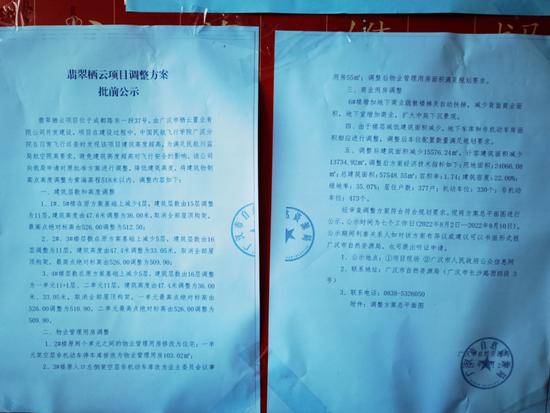 翡翠栖云项目调整方案
批前公示
翡翠栖云项目位于成都路东一段37号,由广汉市栖云置业有
限公司开发建设。项目在建设过程中,中国民航飞行学院广汉分
院在日常飞行任务时发现该项目建筑高度超高,为满足民航川监
局航空限高要求,避免建筑高度超高对飞行安全的影响,该公司
向我局申请对原批准方案进行调整,降低建筑高度,将建筑物制
高点高度调整为黄海高程518米以内。调整内容如下:
一、建筑层数和高度调整
1、5#楼在原方案基础上减少4层,建筑层数由15层调整
为11层,建筑高度由47.4米调整为36.00米,取消全部屋顶构架,
最高点绝对标高由526.00调整为512.50;
2、2#、3#楼层数在原方案基础上减少5层,建筑层数由16
层调整为11层,建筑高度由47.4米调整为33.05米,取消全部屋
顶构架,最高点绝对标高由526.00调整为509.90;
3、4#楼层数在原方案基础上减少5层,建筑层数由16层调整
为一单元11+1层、二单元11层,建筑高度由47.4米调整为36.00
米、33.05米,取消全部屋顶构架,一单元最高点绝对标高由
526.00调整为516.90,二单元最高点绝对标高由526.00调整为
509.90。
二、物业管理用房调整
1、2#楼原两个单元之间的物业管理用房修改为住宅;一单
元架空层非机动车停车库修改为物业管理用房103.02m²;
2、3#楼入口左侧架空层非机动车库改为业主委员会议事
用房55m²;调整后物业管理用房面积满足规划要求。
三、商业用房调整
6#楼增加地下商业疏散楼梯及自动扶梯,减少首层商业面
积,地下室增加商业,扩大中庭下沉景观。
四、由于楼层减低建筑面积减少,地下车库和非机动车库面
积相应进行调整,调整后车位配置数量满足规划要求。
五、调整后建筑面积减少15576.24m²,计容建筑面积减少
13734.92m²,调整后方案经济技术指标如下:用地面积:24066.08
m²;总建筑面积:57548.55m²;容积率:1.74;建筑密度:22.00%;
绿地率:35.07%;居住户数:377户;机动车位:330个;非机动
车位:473个。
经审查调整方案符合符合规划要求,现将方案总平面图进行
公示,公示时间为七个工作日(2022年8月2日—2022年8月10日),
公示期间利害关系人如对该方案有陈议或建议可以书面形式报
广汉市自然资源局,也可提出听证申请。
1、公示地点:①项目现场 ②广汉市人民政府公众信息网
2、联系地址:广汉市自然资源局(广汉市长沙路西四段3
号)
3、联系电话:0838-5326050
附件:调整方案总平面图
广汉市自然资源局